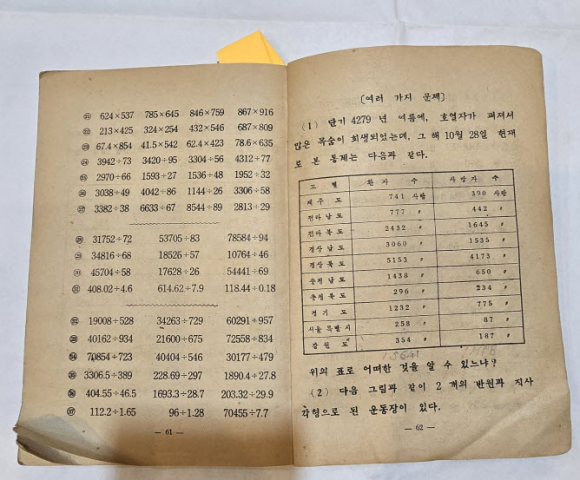 ㉑ 624×537 785×645 846×759 867×916
㉒ 213×425 324×254 432×546 687×809
㉓ 67.4×854 41.5×542 62.4×423 78.6×635
㉔ 3942÷73 3420÷95 3304÷56 4312÷77
㉕ 2970÷66 1593÷27 1536÷48 1952÷32
㉖ 3038÷49 4042÷86 1144÷26 3306÷58
㉗ 3382÷38 6633÷67 8544÷89 2813÷29
㉘ 31752÷72 53705÷83 78584÷94
㉙ 34816÷68 18526÷57 10764÷46
㉚ 45704÷58 17628÷26 54441÷69
㉛ 408.02÷4.6 614.62÷7.9 118.44÷0.18
㉜ 19008÷528 34263÷729 60291÷957
㉝ 40162÷934 21600÷675 72558÷834
㉞ 70854÷723 40404÷546 30177÷479
㉟ 3306.5÷389 228.69÷297 1890.4÷27.8
㊱ 404.55÷46.5 1693.3÷28.7 203.32÷29.9
㊲ 112.2÷1.65 96÷1.28 70455÷7.7
— 61 —
〔여러 가지 문제〕
(1) 단기 4279 년 여름에, 호열자가 퍼져서
많은 목숨이 희생되었는데, 그 해 10월 28일 현재
로 본 통계는 다음과 같다.
도 별 환 자 수 사 망 자 수
제 주 도 741 사람 390 사람
전라 남도 777 〃 442 〃
전라 북도 2432 〃 1645 〃
경상 남도 3060 〃 1535 〃
경상 북도 5153 〃 4173 〃
충청 남도 1438 〃 650 〃
충청 북도 296 〃 234 〃
경 기 도 1232 〃 775 〃
서울 특별 시 258 〃 87 〃
강 원 도 354 〃 187 〃
위의 표로 어떠한 것을 알 수 있느냐?
(2) 다음 그림과 같이 2 개의 반원과 직사
각형으로 된 운동장이 있다.
— 62 —